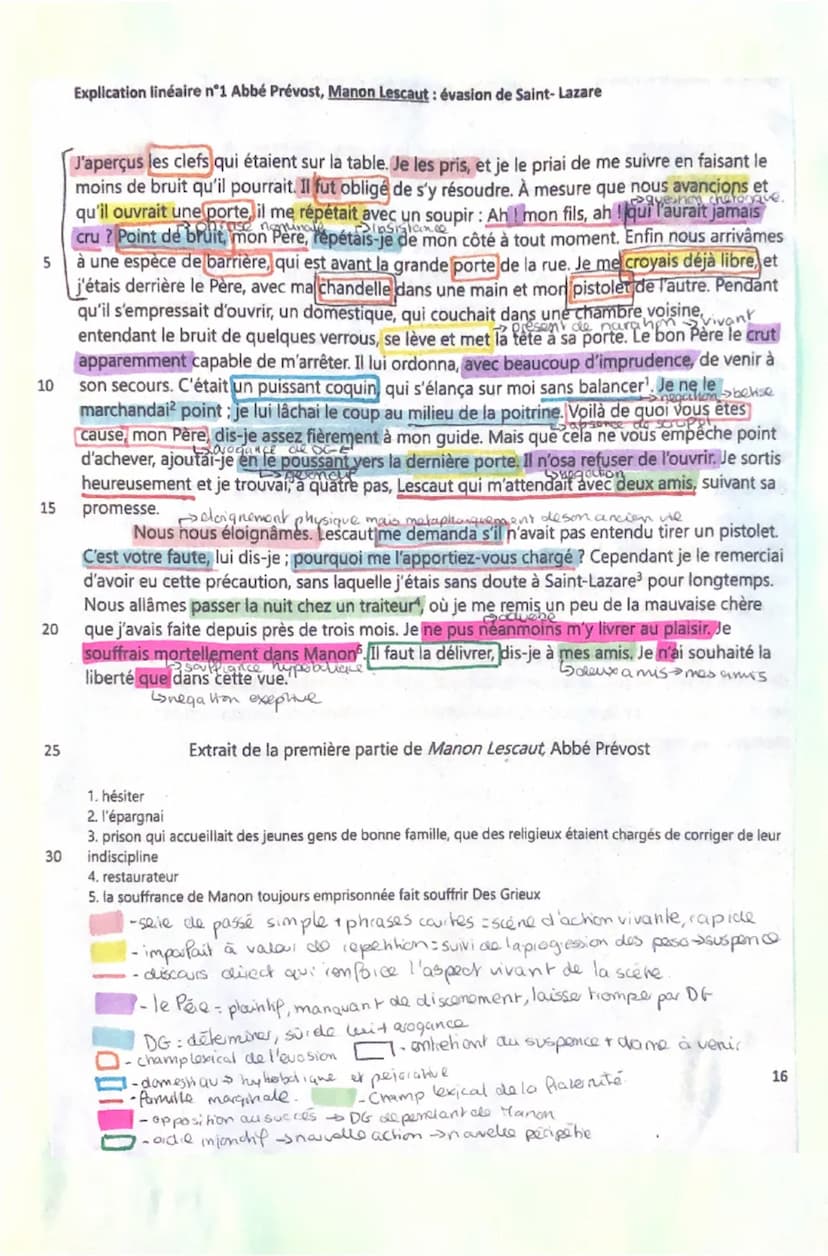 Explication linéaire n°1 Abbé Prévost, Manon Lescaut : évasion de Saint- Lazare
J'aperçus les clefs qui étaient sur la table. Je les pris, et je le priai de me suivre en faisant le
moins de bruit qu'il pourrait. Il fut obligé de s'y résoudre. À mesure que nous avancions et
→question rhétorique.
qu'il ouvrait une porte, il me répétait avec un soupir : Ah ! mon fils, ah ! qui l'aurait jamais
→phrase nominale →insistance
cru ? Point de bruit, mon Père, répétais-je de mon côté à tout moment. Enfin nous arrivâmes
5 à une espèce de barrière, qui est avant la grande porte de la rue. Je me croyais déjà libre, et
j'étais derrière le Père, avec ma chandelle dans une main et mon pistolet de l'autre. Pendant
qu'il s'empressait d'ouvrir, un domestique, qui couchait dans une chambre voisine,
→présent de narration →vivant
entendant le bruit de quelques verrous, se lève et met la tête à sa porte. Le bon Père le crut
apparemment capable de m'arrêter. Il lui ordonna, avec beaucoup d'imprudence, de venir à
10 son secours. C'était un puissant coquin, qui s'élança sur moi sans balancer¹. Je ne le
→négation →betise
marchandai² point ; je lui lâchai le coup au milieu de la poitrine. Voilà de quoi vous êtes
→absence de
cause, mon Père, dis-je assez fièrement à mon guide. Mais que cela ne vous empêche point
→arogance de DG
d'achever, ajoutai-je en le poussant vers la dernière porte. Il n'osa refuser de l'ouvrir. Je sortis
→gérondif →négation
heureusement et je trouvai, à quatre pas, Lescaut qui m'attendait avec deux amis, suivant sa
15 promesse.
→eloignement physique mais métaphoriquement de son ancien vie
Nous nous éloignâmes. Lescaut me demanda s'il n'avait pas entendu tirer un pistolet.
C'est votre faute, lui dis-je ; pourquoi me l'apportiez-vous chargé ? Cependant je le remerciai
d'avoir eu cette précaution, sans laquelle j'étais sans doute à Saint-Lazare³ pour longtemps.
Nous allâmes passer la nuit chez un traiteur⁴, où je me remis un peu de la mauvaise chère
→adverbe
20 que j'avais faite depuis près de trois mois. Je ne pus néanmoins m'y livrer au plaisir. Je
souffrais mortellement dans Manon⁵. Il faut la délivrer, dis-je à mes amis. Je n'ai souhaité la
→souffrance hyperbolique ↳deux amis→mes amis
liberté que dans cette vue."
↳négation exeptive
25 Extrait de la première partie de Manon Lescaut, Abbé Prévost
1. hésiter
2. l'épargnai
3. prison qui accueillait des jeunes gens de bonne famille, que des religieux étaient chargés de corriger de leur
30 indiscipline
4. restaurateur
5. la souffrance de Manon toujours emprisonnée fait souffrir Des Grieux
-serie de passé simple + phrases courtes = scène d'action vivante, rapide
- imparfait à valeur de repetition = suivi de la progression des perso→suspence
- discours direct qui renforce l'aspect vivant de la scène.
- le Père = plaintif, manquant de discernement, laisse trompe par DG
DG : déterminer, sûr de lui + arogance
- champ lexical de l'évasion - entretient du suspence + drame à venir
-domestique → hyperbolique et pejorative
- famille marginale. - Champ lexical de la fraternité.
- opposition au succès → DG dependant de Manon
- ordre injonctif →nouvelle action →nouvelle péripétie
16